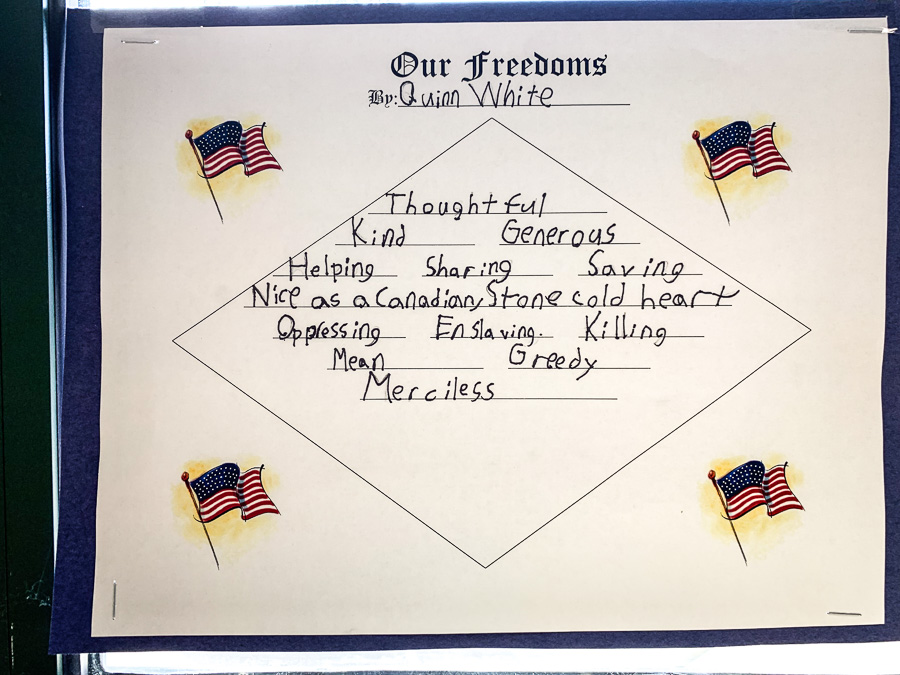 Our Freedoms
By: Quinn White
Thoughtful
Kind Generous
Helping Sharing Saving
Nice as a Canadian, Stone cold heart
Oppressing Enslaving. Killing
Mean Greedy
Merciless